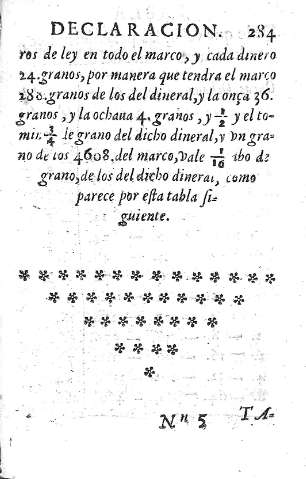 DECLARACION. 284
ros de ley en todo el marco, y cada dinero
24. granos, por manera que tendra el marco
280. granos de los del dineral, y la onça 36.
granos, y la ochaua 4. granos, y 1/2 y el to-
min. 3/4 de grano del dicho dineral, y vn gra-
no de los 4608. del marco, vale 1/16 abo de
grano, de los del dicho dineral, como
parece por esta tabla si-
guiente.
Nn 5 TA-